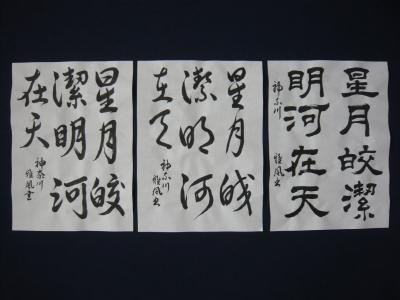 星月皎潔
明河在天
神奈川 雅風書
星月皎
潔明河
在天
神奈川 雅風書
星月皎
潔明河
在天
神奈川
雅風書